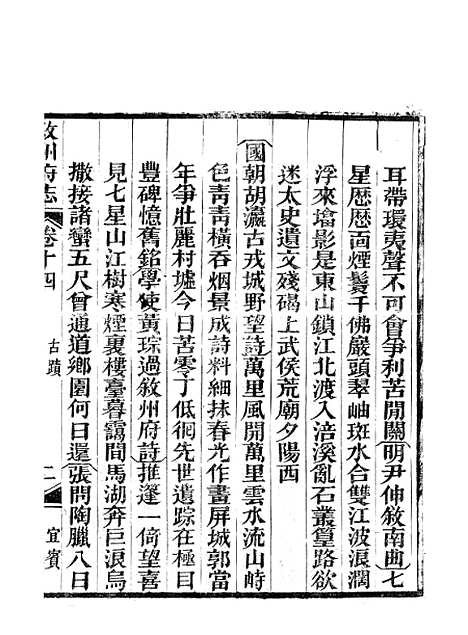 耳帶環夷聲不可會爭利苦開關明尹伸敘南曲七
星歷歷面煙鬟千佛巖頭翠岫斑水合雙江波浪濶
浮來墖影是東山鎖江北渡入涪溪亂石叢篁路欲
迷太史遺文殘碣上武侯荒廟夕陽西
國朝胡瀛古戎城野望詩萬里風開萬里雲水流山峙
色青青橫吞烟景成詩料細抹春光作畫屏城郭當
年爭壯麗村墟今日苦零丁低徊先世遺踪在極目
豐碑憶舊銘學使黃琮過敘州府詩推篷一倚望喜
見七星山江樹寒煙裏樓臺暮靄間馬湖奔巨浪烏
撒接諸蠻五尺曾通道鄉園何日還張問陶臘八日
敘州府志
卷十四
古蹟
二
宜賓